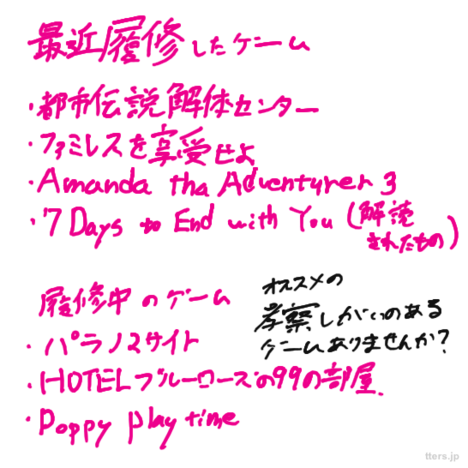 最近履修したゲーム
・都市伝説解体センター
・ファミレスを享受せよ
・Amanda tha Adventurer 3
・7 Days to End with You (解読
されたもの)
履修中のゲーム
・パラノマサイト
・HOTELブルーローズの99の部屋
・Poppy play time
オススメの
考察しがいのある
ゲームありませんか?
tters.jp